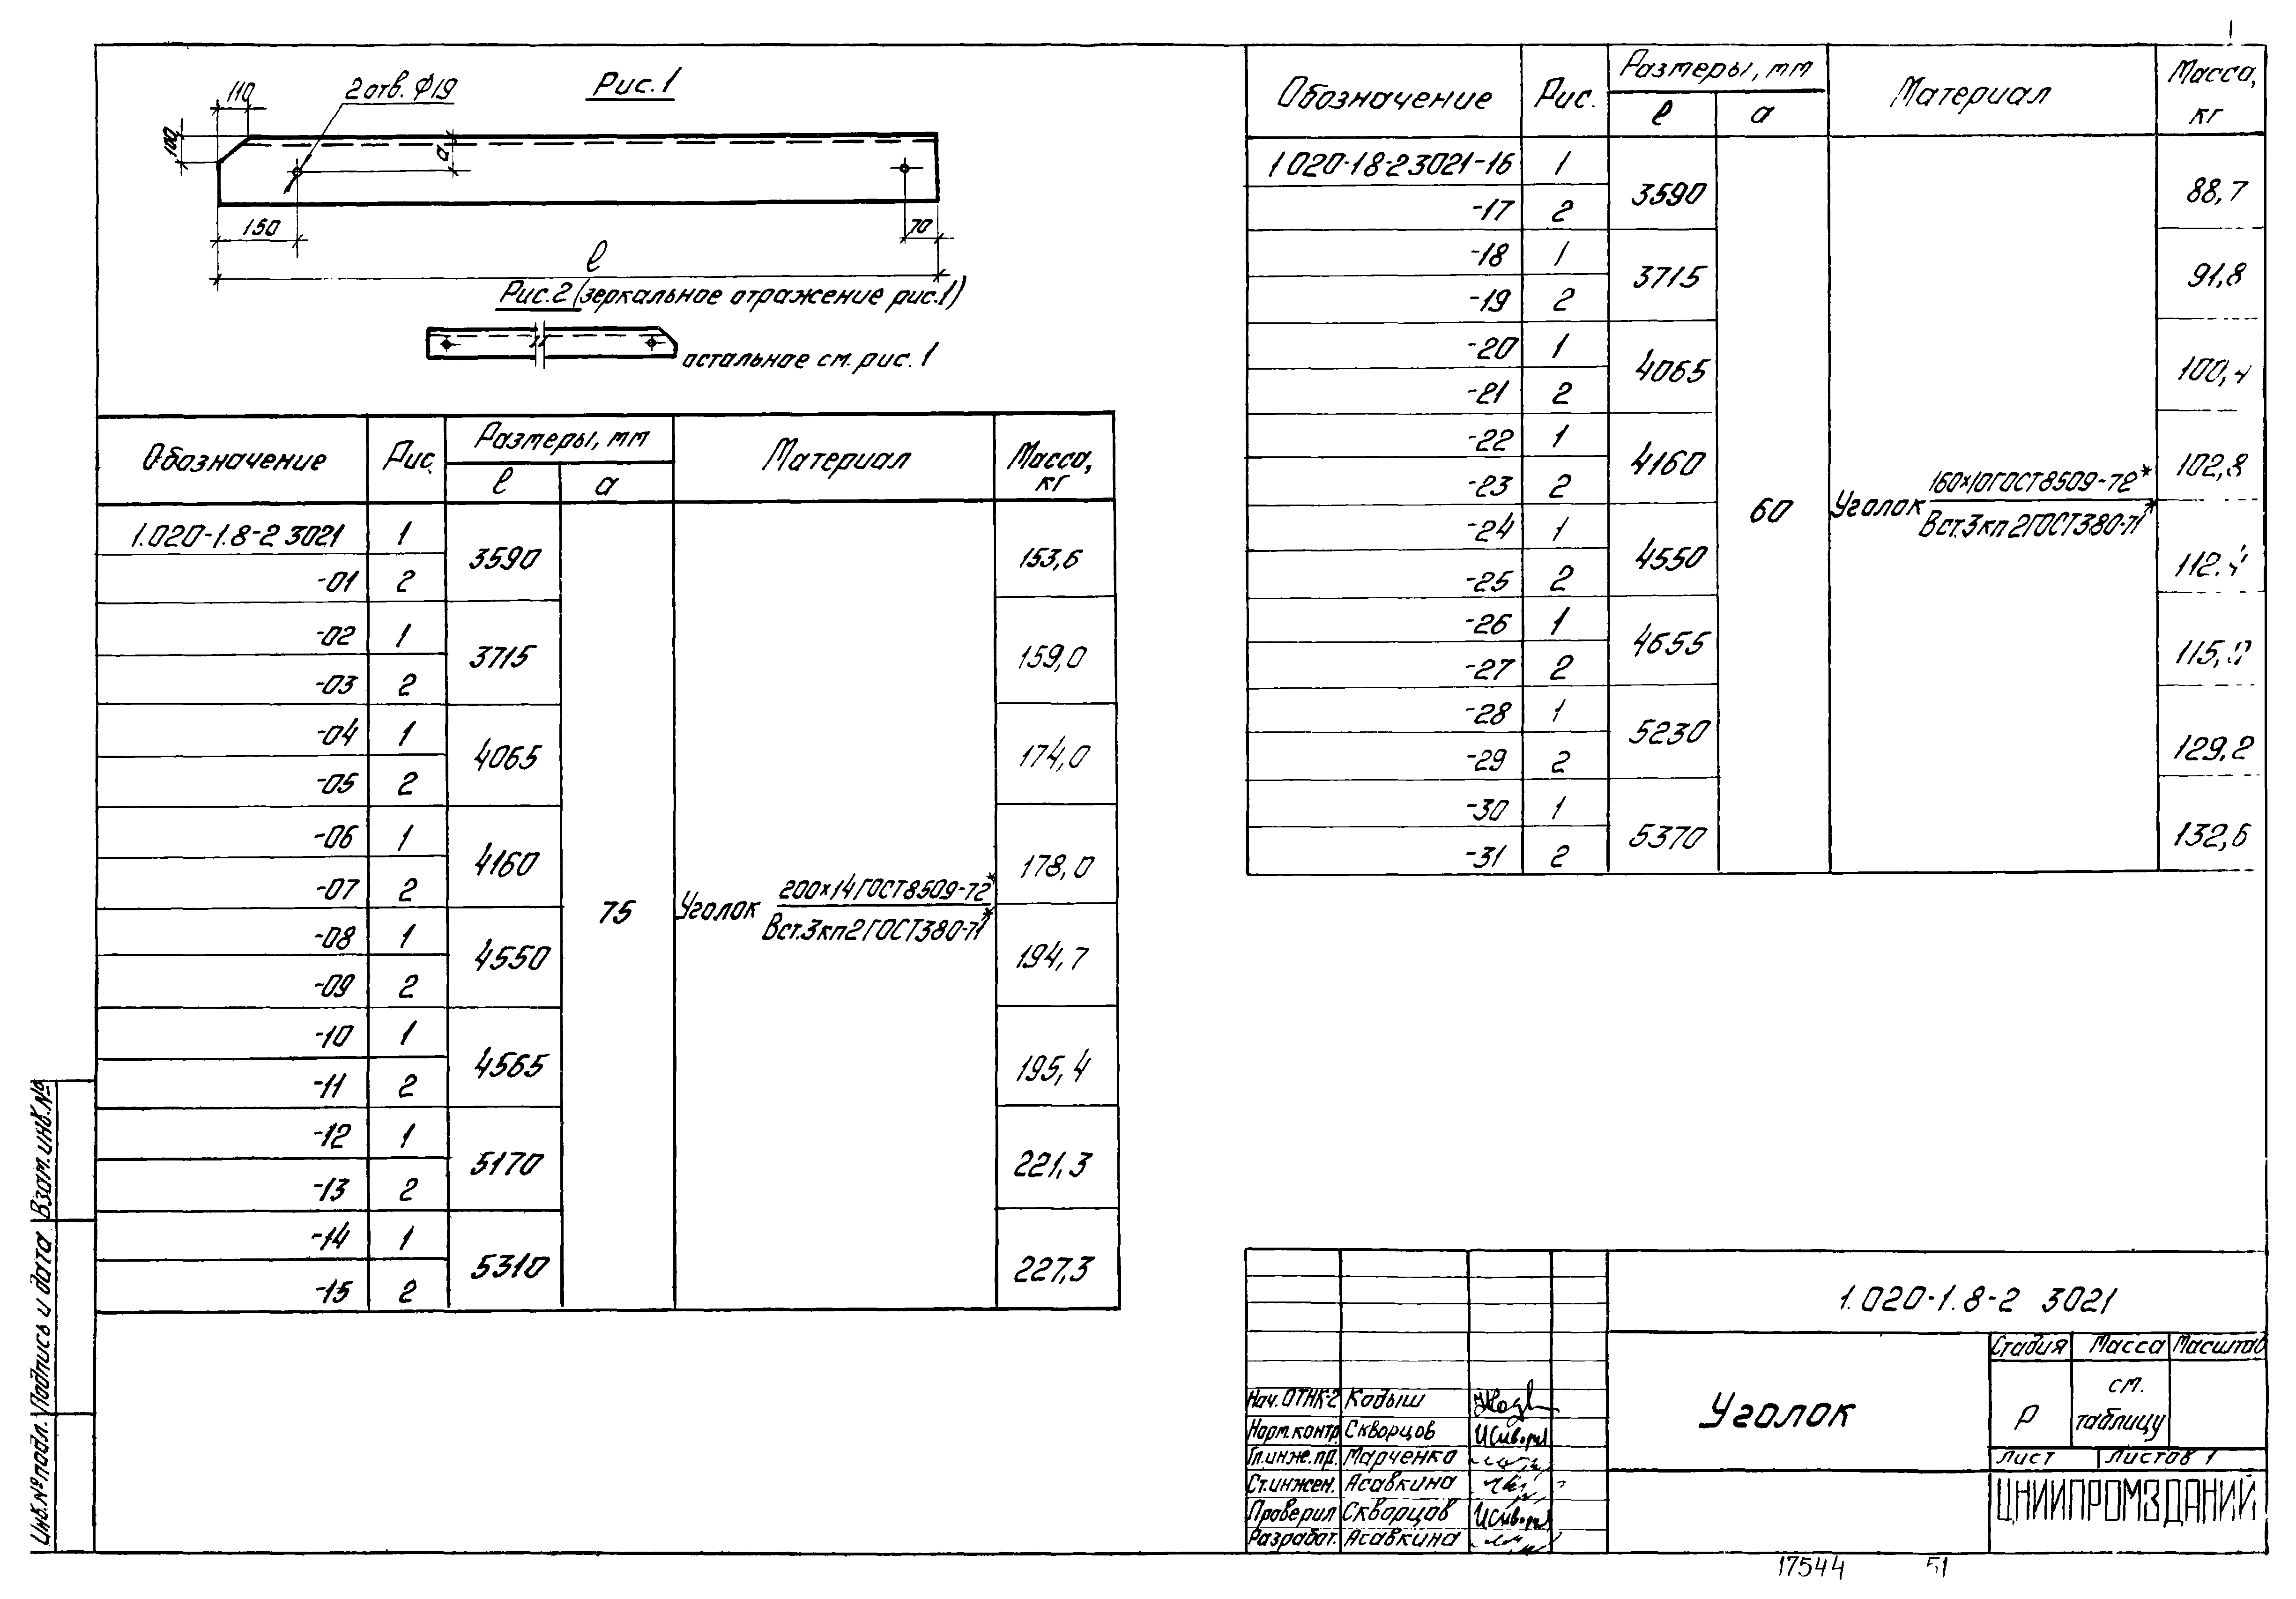 Рис. 1
110
2 отв. Ф19
100
a
150
70
ℓ
Рис. 2 (зеркальное отражение рис. 1)
остальное см. рис. 1
Обозначение Рис. Размеры, мм Материал Масса, кг
ℓ a
1.020-1.8-2 3021 1 3590 153,6
-01 2
-02 1 3715 159,0
-03 2
-04 1 4065 174,0
-05 2
-06 1 4160 178,0
-07 2
75 Уголок 200×14 ГОСТ 8509-72*
Вст.3кп2 ГОСТ 380-71*
-08 1 4550 194,7
-09 2
-10 1 4565 195,4
-11 2
-12 1 5170 221,3
-13 2
-14 1 5310 227,3
-15 2
Обозначение Рис. Размеры, мм Материал Масса, кг
ℓ a
1.020-1.8-2 3021-16 1 3590 88,7
-17 2
-18 1 3715 91,8
-19 2
-20 1 4065 100,4
-21 2
-22 1 4160 102,8
-23 2
60 Уголок 160×10 ГОСТ 8509-72*
Вст.3кп2 ГОСТ 380-71*
-24 1 4550 112,4
-25 2
-26 1 4655
-27 2
-28 1 5230 129,2
-29 2
-30 1 5370 132,6
-31 2
Взам. инв. №
Подпись и дата
Инв. № подл.
1.020-1.8-2 3021
Уголок
Стадия Масса Масштаб
Р см. таблицу
Лист Листов 1
ЦНИИПРОМЗДАНИЙ
Нач. ОТНК-2 Кодыш
Норм.контр. Скворцов
Гл.инж.пр. Марченко
Ст.инжен. Асавкина
Проверил Скворцов
Разработ. Асавкина
17544 51